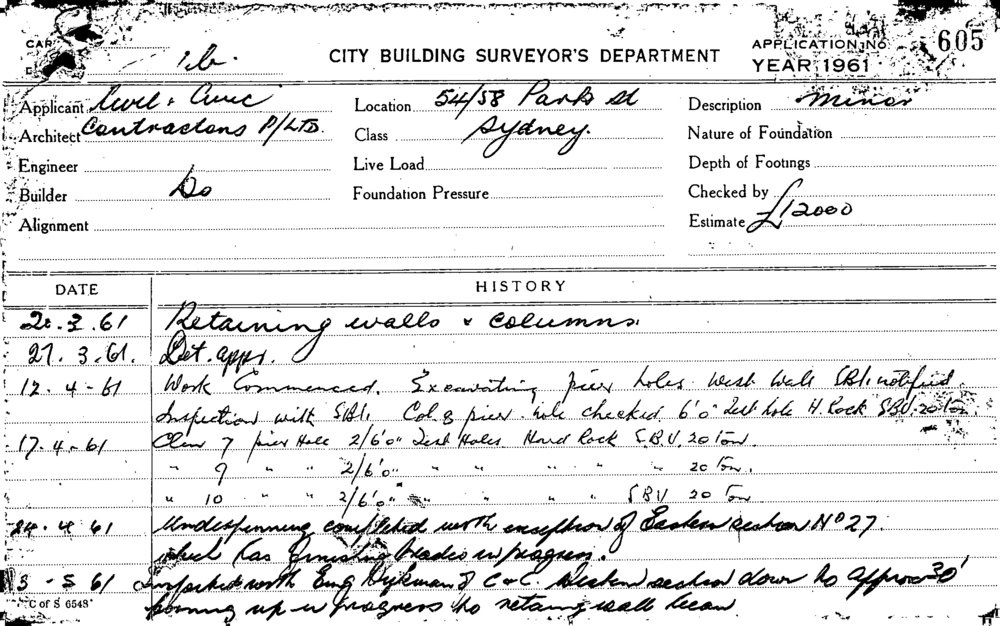 CITY BUILDING SURVEYOR'S DEPARTMENT
APPLICATION No. 605
YEAR 1961
Applicant Civil & Civic Location 54/58 Park St Description Minor
Architect Contractors P/LTD. Class Sydney. Nature of Foundation
Engineer Live Load Depth of Footings
Builder Do Foundation Pressure Checked by
Alignment Estimate £12000
DATE HISTORY
2 .3.61 Retaining walls & columns.
27.3.61. Det. appr.
12-4-61 Work Commenced. Excavating pier holes West Wall SBI. notified.
Inspection with SBI. Col 8 pier hole checked 6'0" Test hole H. Rock SBV. 20 Ton.
17-4-61 Clmn 7 pier Hole 2/6'0" Test Holes Hard Rock S.B.V. 20 Ton.
" 9 " " 2/6'0" " " " " " 20 Ton.
" 10 " " 2/6'0" " " " " SBV 20 Ton
24.4.61 Underpinning completed with exception of Eastern section No 27.
which has finishing in progress.
3-5 61 Inspected with Eng Dykman of C & C. Western section down to approx 30'
up in progress to retaing wall beam
C of S 6548